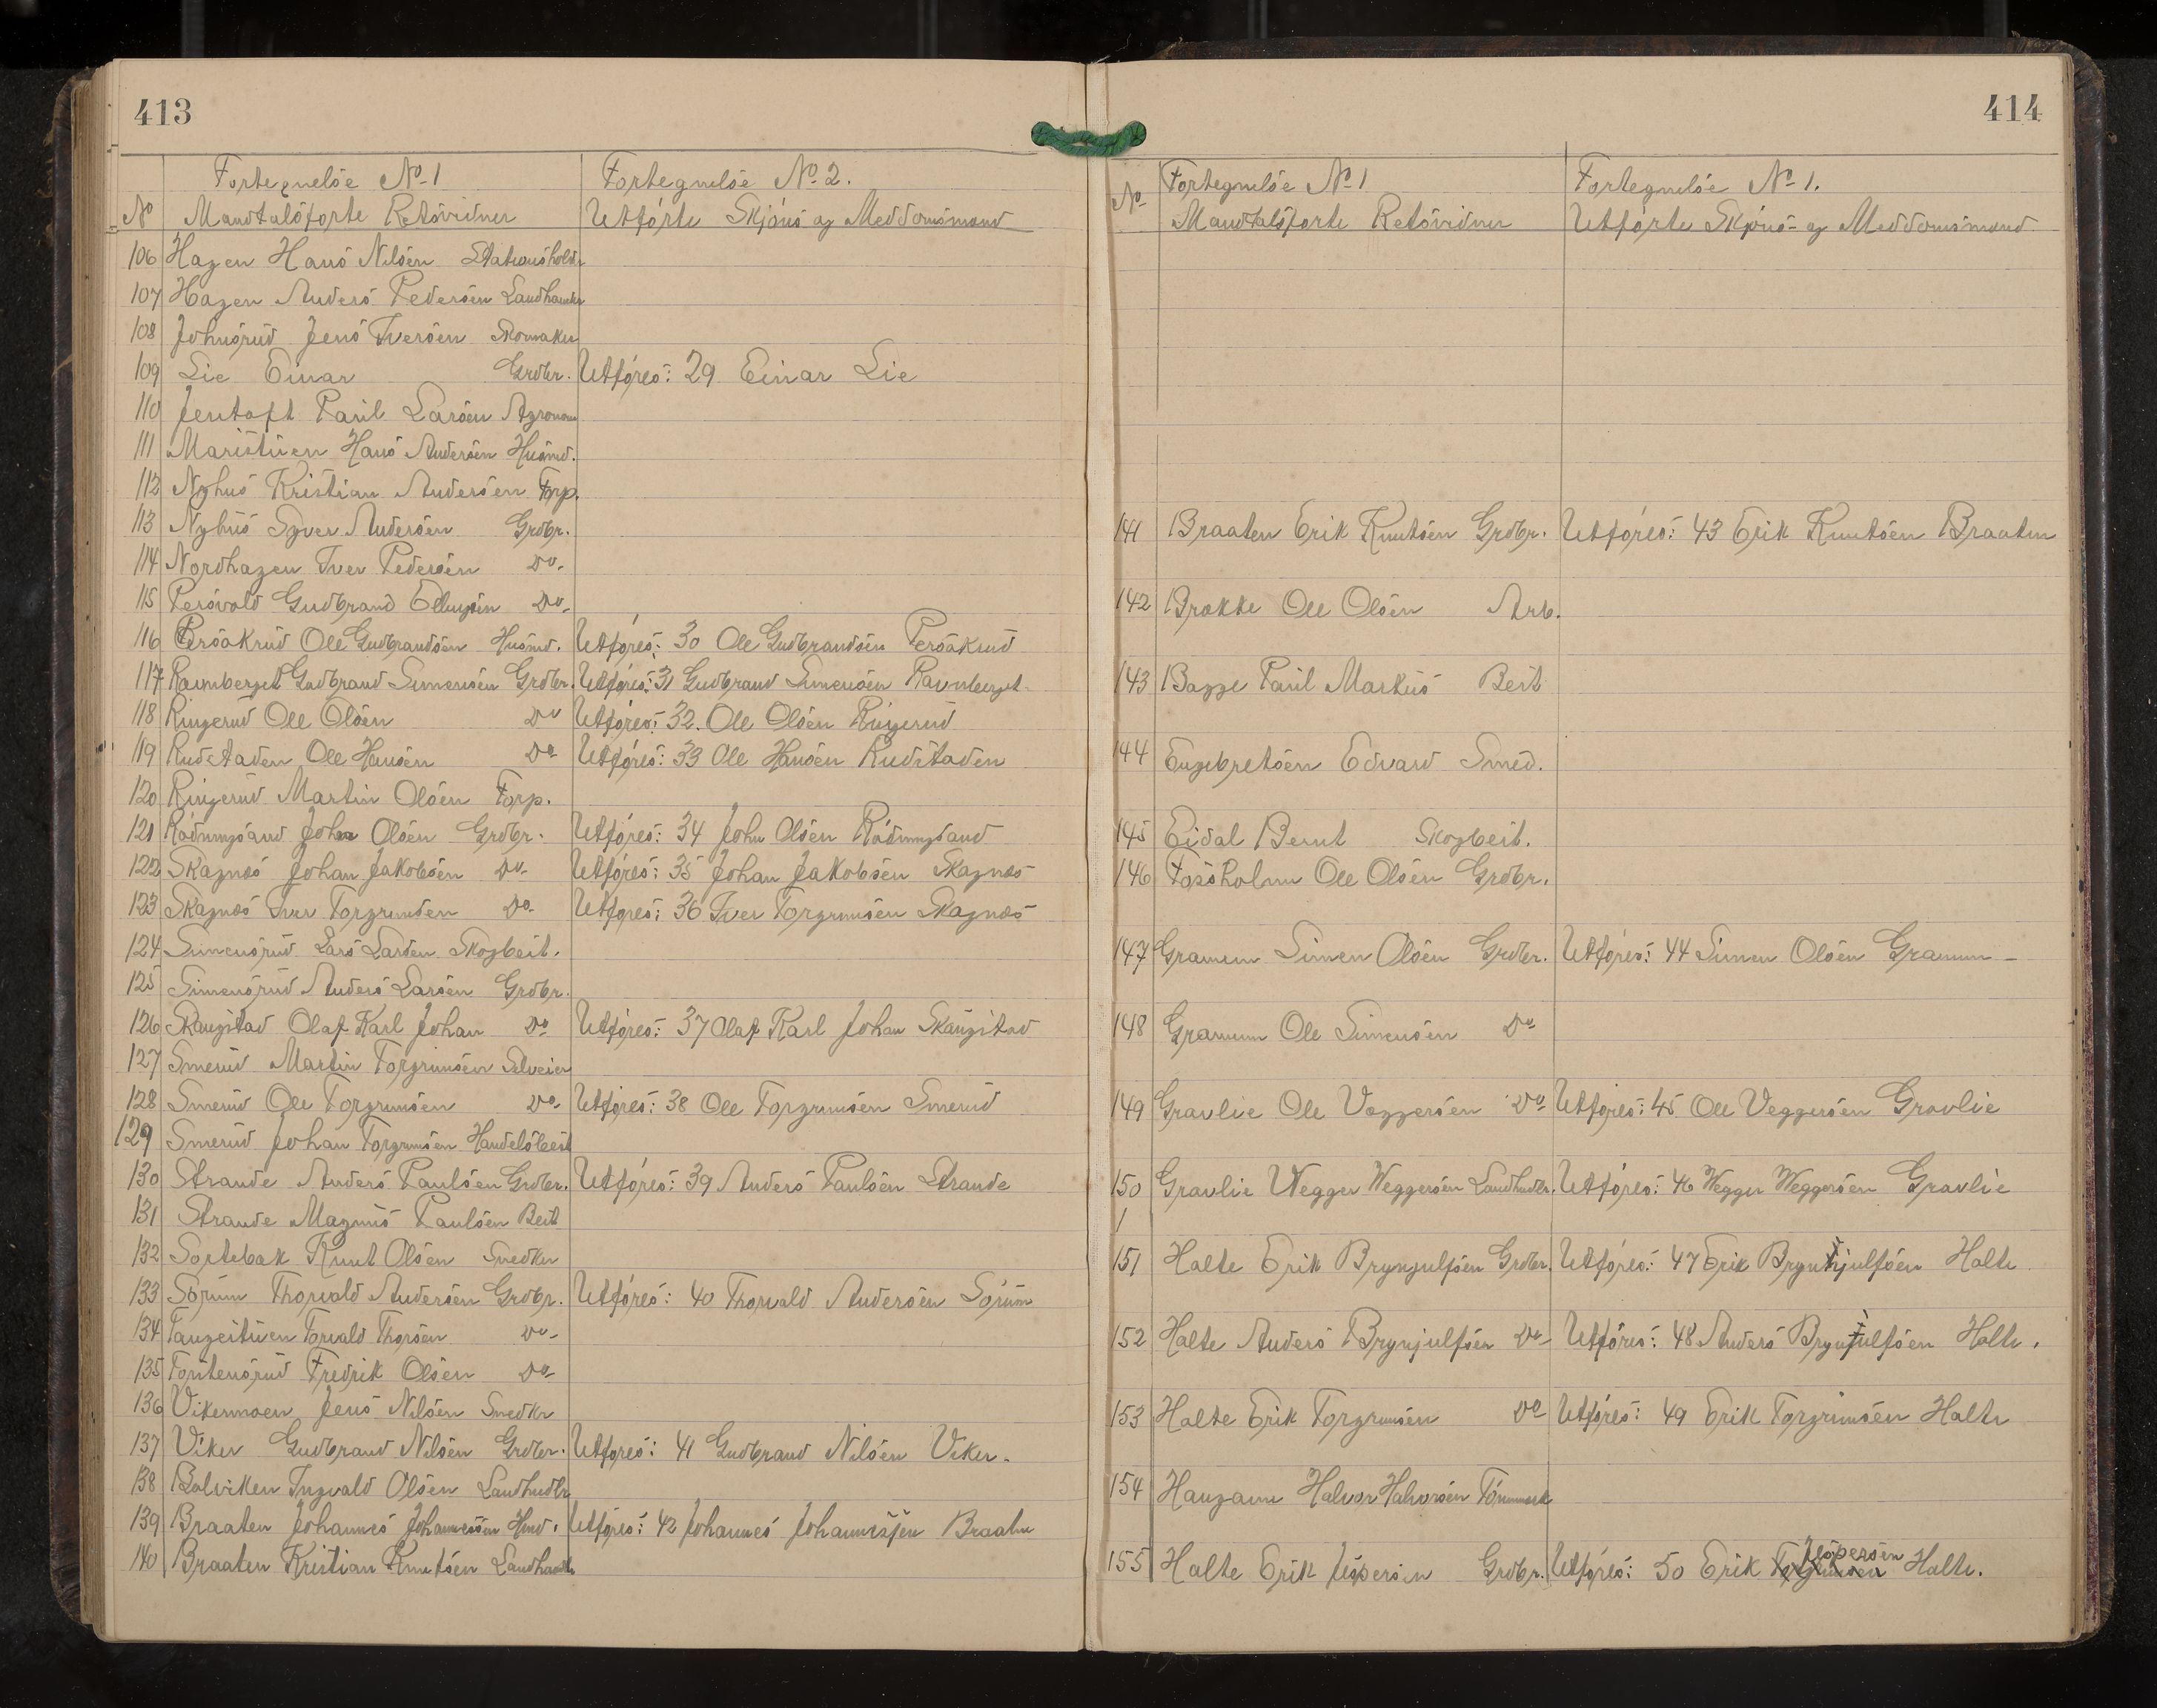 413
Fortegnelse No 1 Fortegnelse No 2.
No Mandtalsførte Retsvidner Utførte Skjøns og Meddomsmænd
106 Hagen Hans Nilsen Stationsholder
107 Hagen Anders Pedersen Landhandler
108 Johnsrud Jens Iversen Skomaker
109 Lie Einar Grdbr. Utføres: 29 Einar Lie
110 Jentoft Paul Larsen Agronom
111 Maristuen Hans Andersen Husmd.
112 Nyhus Kristian Andersen Forp.
113 Nyhus Syver Andersen Grdbr.
114 Nordhagen Iver Pedersen Do-
115 Persvold Gudbrand Ellingsen Do-
116 Persakrud Ole Gudbrandsen Husmd. Utføres: 30 Ole Gudbrandsen Persakrud
117 Ravnberget Gudbrand Simensen Grdbr. Utføres: 31 Gudbrand Simensen Ravnberget
118 Ringerud Ole Olsen Do Utføres: 32. Ole Olsen Ringerud
119 Rudstaden Ole Hansen Do- Utføres: 33 Ole Hansen Rudstaden
120 Ringerud Martin Olsen Forp.
121 Rødningsand John Olsen Grdbr. Utføres: 34 John Olsen Rødningsand
122 Skagnæs Johan Jakobsen Do- Utføres: 35 Johan Jakobsen Skagnæs
123 Skagnæs Iver Torgrimsen Do- Utføres: 36 Iver Torgrimsen Skagnæs
124 Simensrud Lars Larsen Skogbest.
125 Simensrud Anders Larsen Grdbr.
126 Skaugstad Olaf Karl Johan Do Utføres: 37 Olaf Karl Johan Skaugstad
127 Smerud Martin Torgrimsen Selveier
128 Smerud Ole Torgrimsen Do- Utføres: 38 Ole Torgrimsen Smerud
129 Smerud Johan Torgrimsen Handelsbest
130 Strande Anders Paulsen Grdbr. Utføres: 39 Anders Paulsen Strande
131 Strande Magnus Paulsen Best
132 Sortebæk Knut Olsen Snedker
133 Sørum Thorvald Andersen Grdbr. Utføres: 40 Thorvald Andersen Sørum
134 Torvald Thorsen Do-
135 Tostensrud Fredrik Olsen Do-
136 Vikermoen Jens Nilsen Snedkr
137 Viker Gudbrand Nilsen Grdbr. Utføres: 41 Gudbrand Nilsen Viker.
138 Bølviken Ingvald Olsen Landhndlr
139 Braaten Johannes Johannessen Hmd. Utføres: 42 Johannes Johannessen Braaten
140 Braaten Kristian Knutsen Landhandl
414
Fortegnelse No 1 Fortegnelse No 1.
No Mandtalsførte Retsvidner Utførte Skjøns- og Meddomsmænd
141 Braaten Erik Knutsen Grdbr. Utføres: 43 Erik Knutsen Braaten
142 Brække Ole Olsen Arb.
143 Bagge Paul Markus Best
144 Engebretsen Edvard Smed.
145 Eidal Bernt Skogbest.
146 Fossholm Ole Olsen Grdbr.
147 Gramum Simen Olsen Grdbr. Utføres: 44 Simen Olsen Gramum
148 Gramum Ole Simensen Do
149 Gravlie Ole Veggersen Do Utføres: 45 Ole Veggersen Gravlie
150 Gravlie Wegger Weggersen Landhndlr. Utføres: 46 Wegger Weggersen Gravlie
151 Halte Erik Brynjulfsen Grdbr. Utføres: 47 Erik Brynjulfsen Halte.
152 Halte Anders Brynjulfsen Do- Utføres: 48 Anders Brynjulfsen Halte.
153 Halte Erik Torgrimsen Do Utføres: 49 Erik Torgrimsen Halte
154 Haugann Halvor Halvorsen Tømmerm
155 Halte Erik Jespersen Grdbr. Utføres: 50 Erik Torgrimsen Jespersen Halte.